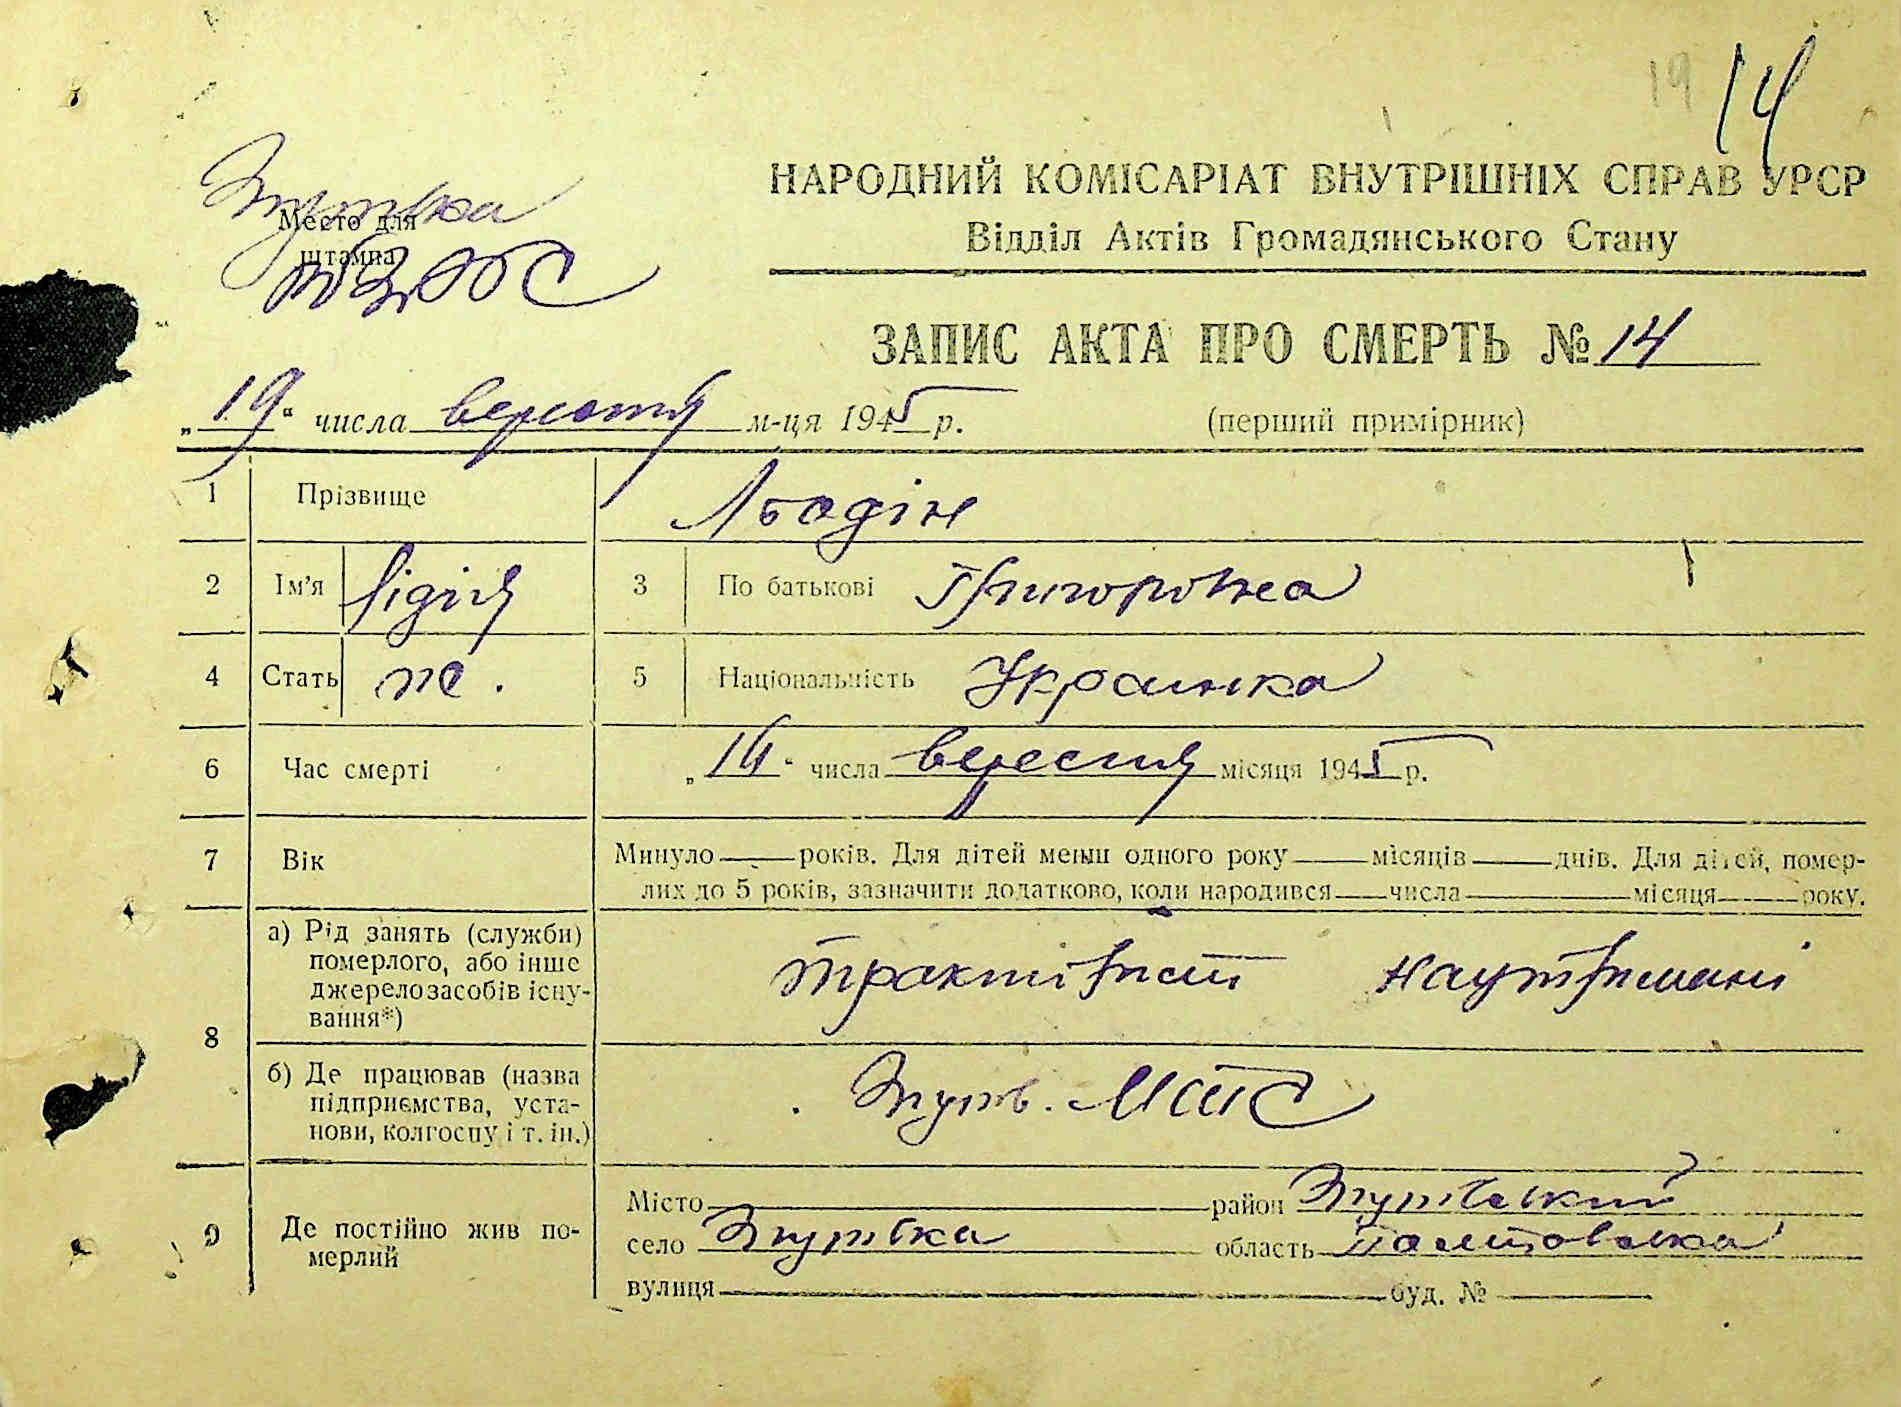 19 14
НАРОДНИЙ КОМІСАРІАТ ВНУТРІШНІХ СПРАВ УРСР
Відділ Актів Громадянського Стану
Место для
штампа
ЗАПИС АКТА ПРО СМЕРТЬ № 14
„19" числа вересня м-ця 1945 р. (перший примірник)
1 Прізвище
2 Ім'я Лідія 3 По батькові Григоровна
4 Стать ж. 5 Національність Украинка
6 Час смерті „14" числа вересня місяця 1945 р.
7 Вік Минуло — років. Для дітей менш одного року — місяців — днів. Для дітей, помер-
лих до 5 років, зазначити додатково, коли народився — числа — місяця — року.
8 а) Рід занять (служби)
померлого, або інше
джерело засобів існу-
вання*) тракторист на утриманні
б) Де працював (назва
підприємства, уста-
нови, колгоспу і т. ін.) МТС
9 Де постійно жив по-
мерлий
Місто — район
село область Полтовська
вулиця — буд. № —